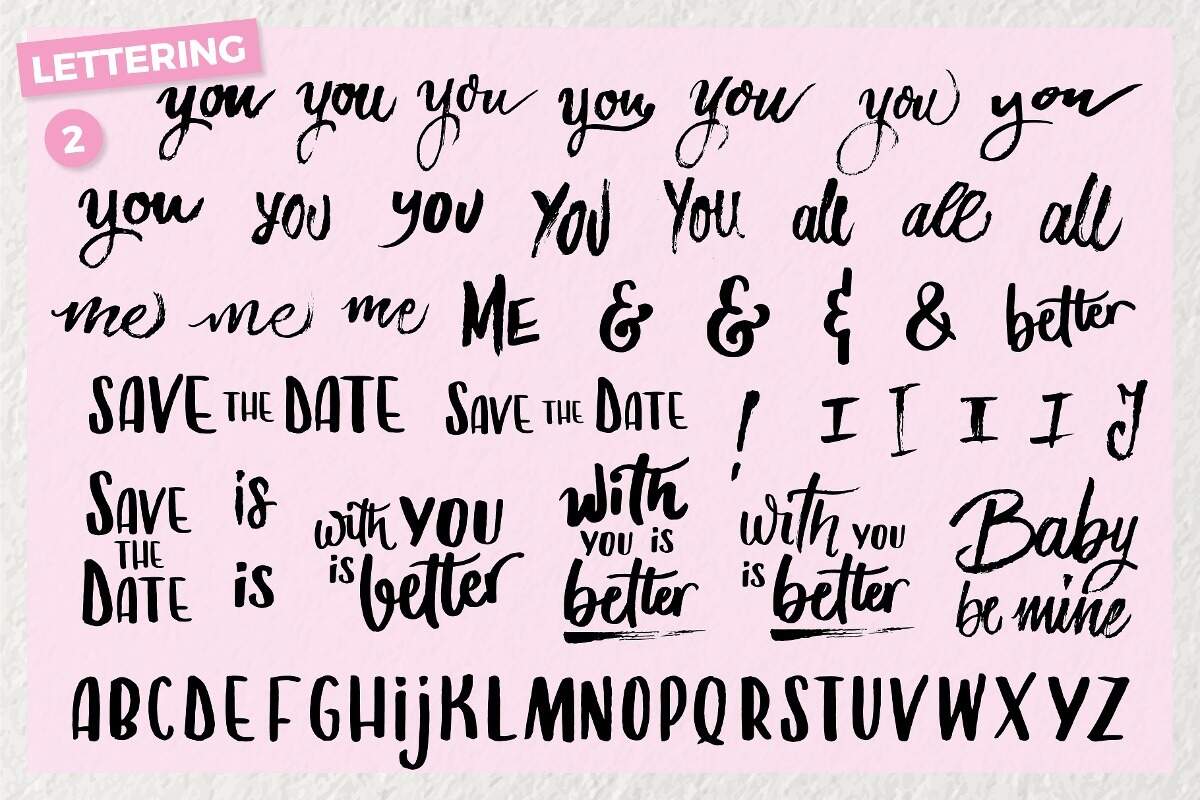 LETTERING
2
you you you you you you you
you you you you you all all all
me me me ME & & & & better
SAVE THE DATE SAVE THE DATE ! I I I I J
SAVE
THE
DATE
is
is
with YOU
is better
with
YOU is
better
with YOU
is better
Baby
be mine
ABCDEFGHijKLMNOPQRSTUVWXYZ